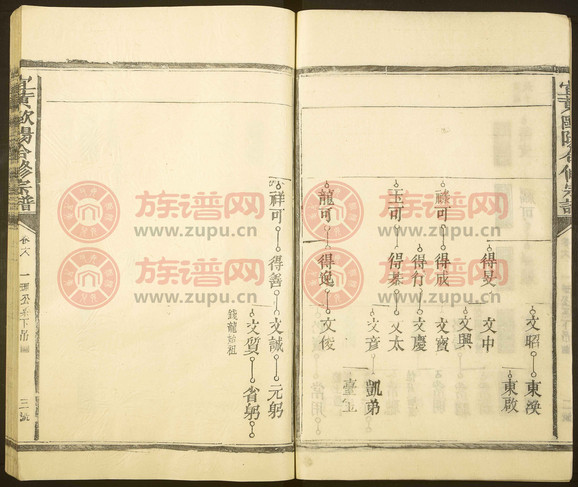 宜黄歐陽合修宗譜
文昭 東渙
東啟
得旻 文中
文興
得成 文寶
得行 文慶
玉可 得綦 文太
文音 凱弟
臺玉
龍可 得逸 文俊
祥可 得善 文誠 元躬
文質 省躬
錢龍始祖
宜黄歐陽合修宗譜
族谱网
www.zupu.cn
族谱网
www.zupu.cn
族谱网
www.zupu.cn
族谱网
www.zupu.cn